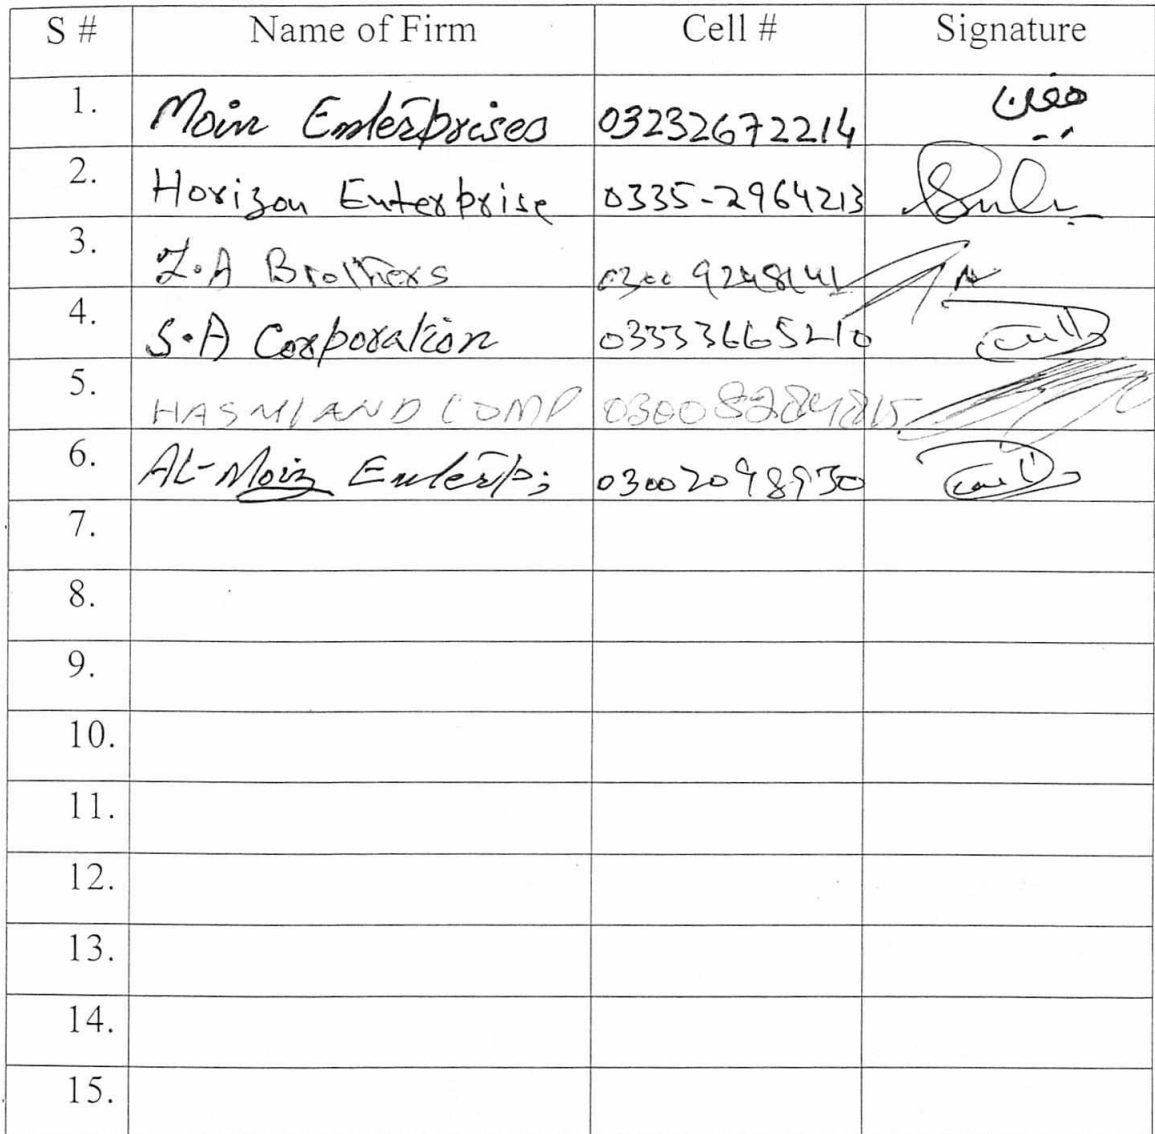 S # Name of Firm Cell # Signature
1. Moin Enterprises 03232672214 معین
2. Horizon Enterprise 0335-2964213
3. Z.A Brothers
4. S.A Corporation 03333665210
5. HASMI AND COMP
6. AL-Moiz Enterp; 03002098930
7.
8.
9.
10.
11.
12.
13.
14.
15.